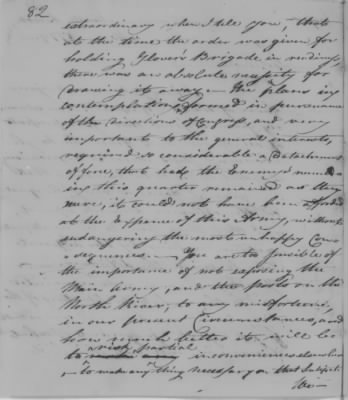 82
extraordinary when I tell you, that
at the time the order was given for
holding Glover's Brigade in readiness
there was an absolute necessity for
drawing it away — The plans in
contemplation, formed in pursuance
of the directions of Congress, and very
important to the general interests,
required so considerable a detachment
of force, that had the Enemys
in this quarter remained as they
were, it could not have been afforded
at the expence of this Army, without
endangering the most unhappy Con-
sequences. — You are too sensible of
the importance of not exposing the
Main Army, and the posts on the
North River, to any misfortune,
in our present Circumstances, and
how much better it will be
to risk partial inconveniences elsewhere
to make any thing necessary on that